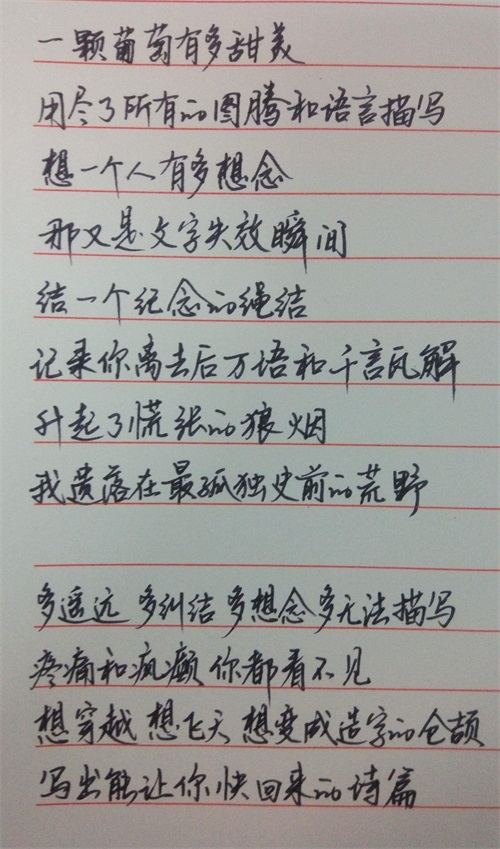 一颗葡萄有多甜美
用尽了所有的图腾和语言描写
想一个人有多想念
那又是文字失效瞬间
结一个纪念的绳结
记录你离去后万语和千言瓦解
升起了慌张的狼烟
我遗落在最孤独史前的荒野
多遥远 多纠结 多想念 多无法描写
疼痛和疯癫 你都看不见
想穿越 想飞天 想变成造字的仓颉
写出能让你快回来的诗篇